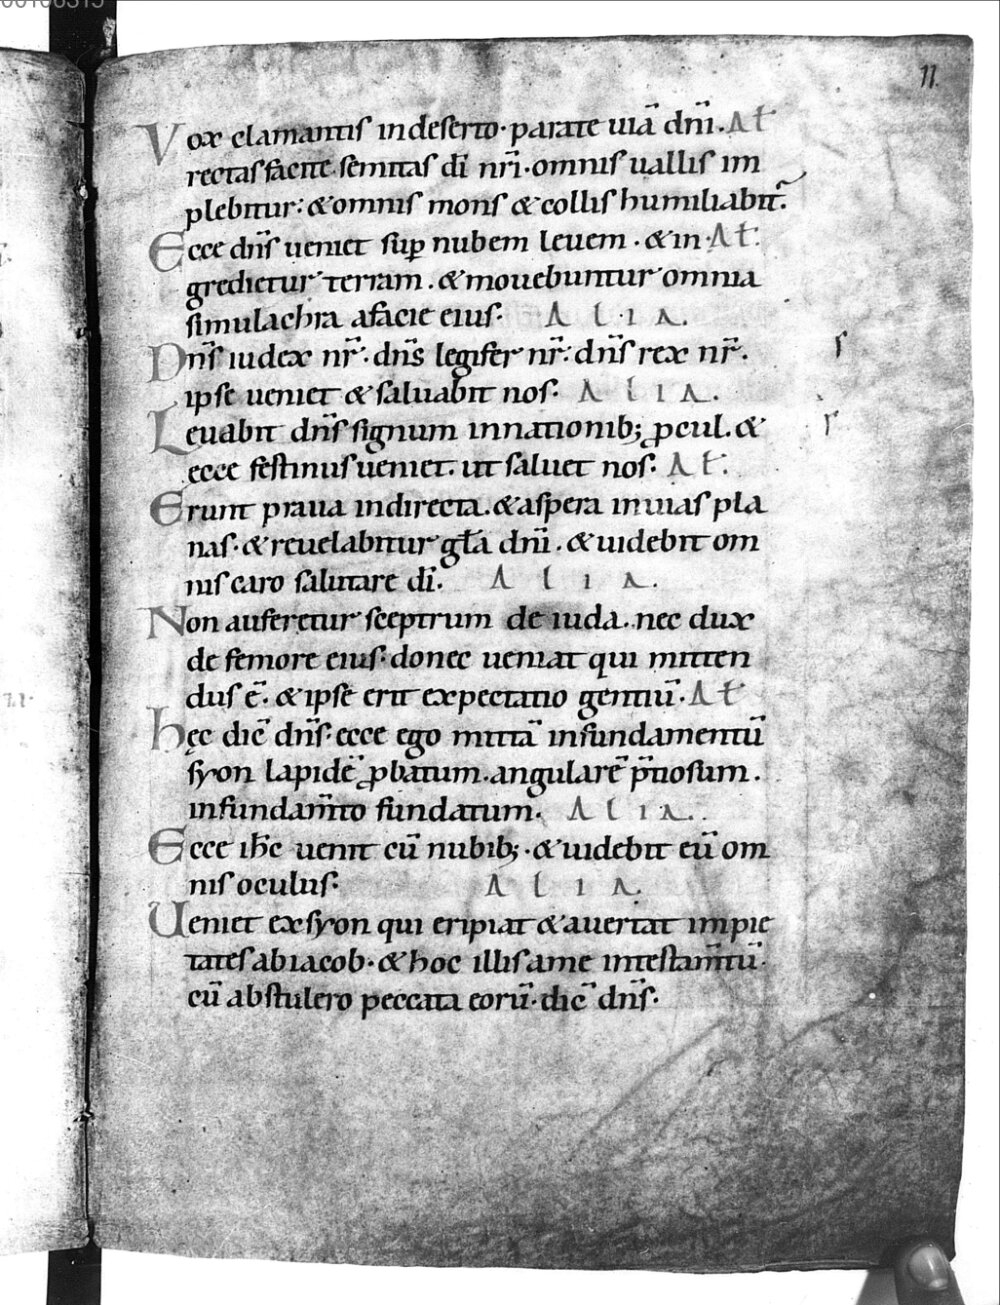 11.
Vox clamantis in deserto· parate uiā dn̄i. Al̄
rectas facite semitas dī nr̄i· omnis uallis im
plebitur: & omnis mons & collis humiliabit᷑.
Ecce dn̄s ueniet sup̄ nubem leuem· & in Al̄
gredietur terram. & mouebuntur omnia
simulachra a facie eius· A L I A.
Dn̄s iudex nr̄. dn̄s legifer nr̄: dn̄s rex nr̄.
ipse ueniet & saluabit nos· A L I A.
Leuabit dn̄s signum in nationib; ꝓcul. &
ecce festinus ueniet. ut saluet nos· Al̄.
Erunt praua in directa. & aspera in uias pla
nas· & reuelabitur gl̄a dn̄i. & uidebit om
nis caro salutare dī. A L I A.
Non auferetur sceptrum de iuda. nec dux
de femore eius· donec ueniat qui mitten
dus ē. & ipse erit expectatio gentiū· Al̄
Hęc dic̄ dn̄s· ecce ego mittā in fundamentū
syon lapidē ꝓbatum. angularē p̄tiosum.
in fundam̄to fundatum· A L I A.
Ecce ih̄c uenit cū nubib;· & uidebit eū om
nis oculus· A L I A.
Ueniet ex syon qui eripiat & auertat impie
tates ab iacob· & hoc illis a me in testam̄tū·
cū abstulero peccata eorū· dic̄ dn̄s·